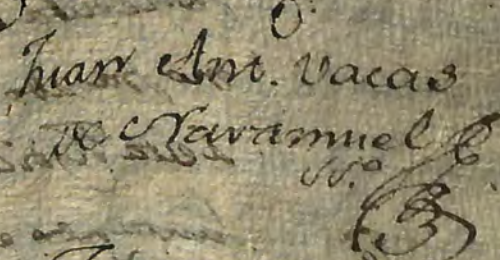 Juan Ant. Vacas
de Navamuel